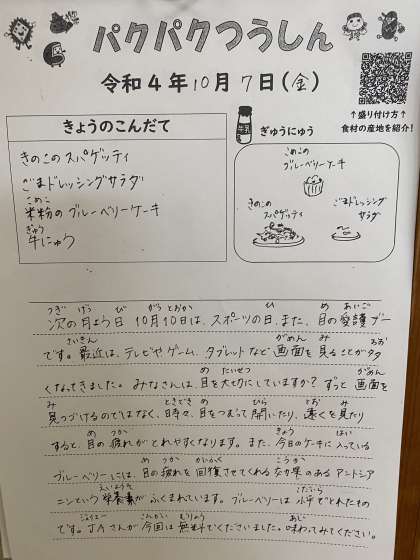 パクパクつうしん
令和4年10月7日(金)
↑盛り付け方↑
食材の産地を紹介!
きょうのこんだて
きのこのスパゲッティ
ごまドレッシングサラダ
こめこ
米粉のブルーベリーケーキ
ぎゅう
牛にゅう
牛乳
ぎゅうにゅう
こめこの
ブルーベリーケーキ
きのこの
スパゲッティ
ごまドレッシング
サラダ
つぎ げつ び がつとおか ひ め あいご
次の月よう日10月10日は、スポーツの日、また、目の愛護デー
さいきん がめん み おお
です。最近は、テレビやゲーム、タブレットなど画面を見ることが多
め たいせつ がめん
くなってきました。みなさんは、目を大切にしていますか?ずっと画面を
み ときどき め ひら とお み
見つづけるのではなく、時々、目をつむって開いたり、遠くを見たり
め つか きょう はい
すると、目の疲れがとれやすくなります。また、今日のケーキに入っている
め つか かいふく こうか
ブルーベリーには、目の疲れを回復させてくれる効果のあるアントシア
えいようそ こだいら
ニンという栄養素がふくまれています。ブルーベリーは小平でとれたもの
じぇいえー こんかい むりょう あじ
です。JAさんが今回は無料でくださいました。味わってみてください。